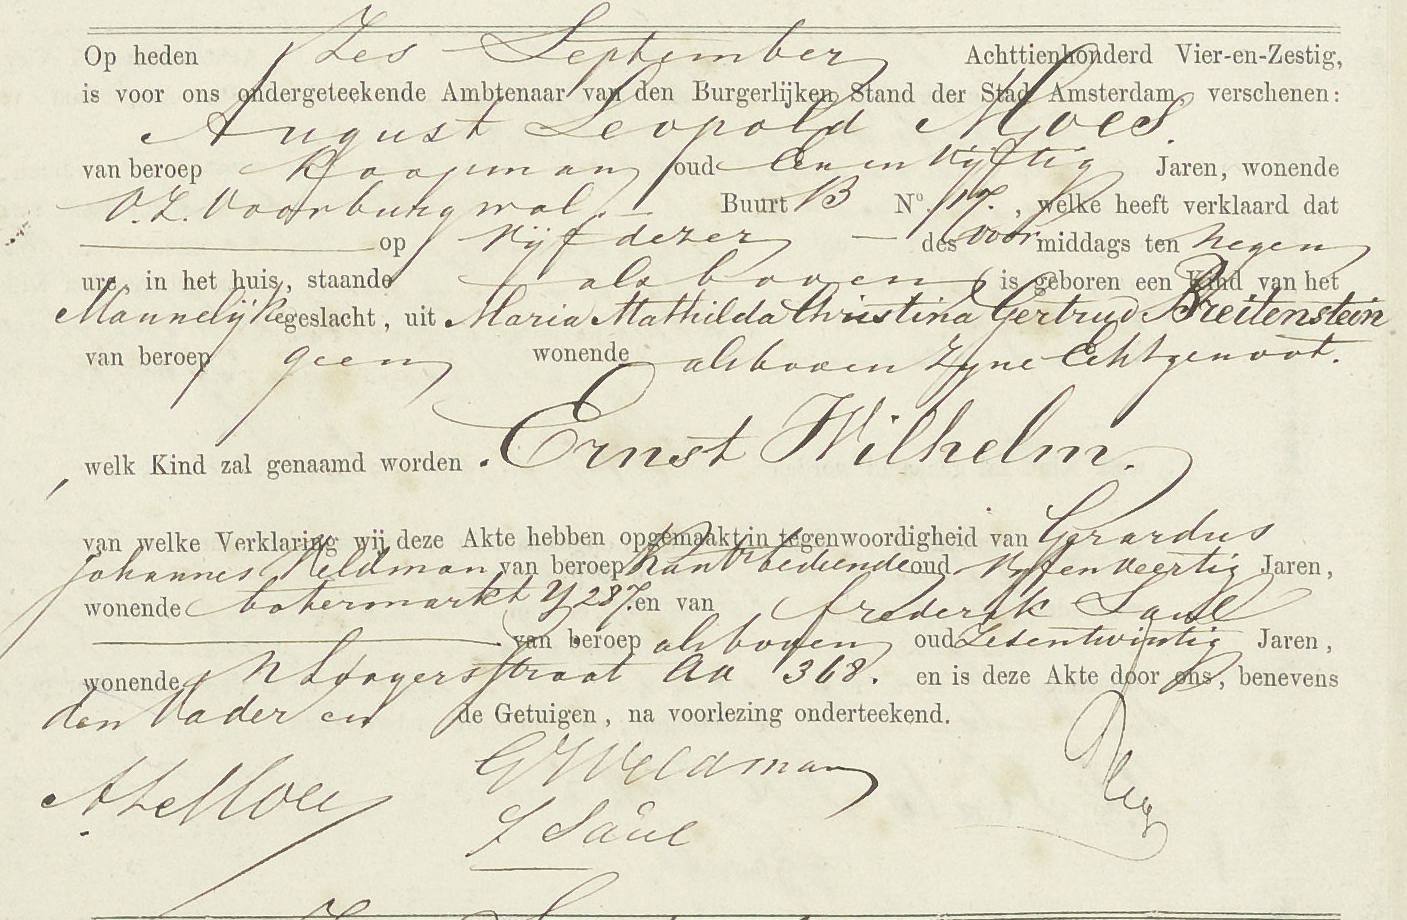 Op heden Zes September Achttienhonderd Vier-en-Zestig,
is voor ons ondergeteekende Ambtenaar van den Burgerlijken Stand der Stad Amsterdam, verschenen:
August Leopold Moes
van beroep Koopman oud Eenen Vijftig Jaren, wonende
O.Z. Voorburgwal. Buurt B No. 17. , welke heeft verklaard dat
op Vijf dezer des voormiddags ten Negen
ure, in het huis, staande als boven is geboren een Kind van het
Mannelijke geslacht, uit Maria Mathilda Christina Gertrud Breitenstein
van beroep geen wonende alsboven zyne Echtgenoot.
welk Kind zal genaamd worden Ernst Wilhelm.
van welke Verklaring wij deze Akte hebben opgemaakt in tegenwoordigheid van Gerardus
Johannes Veldman van beroep Kantr bediende oud Vyfenveertig Jaren,
wonende botermarkt Y 287. en van Frederik Saul
van beroep alsboven oud Zesentwintig Jaren,
wonende straat AA 368. en is deze Akte door ons, benevens
den Vader en de Getuigen, na voorlezing onderteekend.
A L Moes
GJ Veldman
F Saül